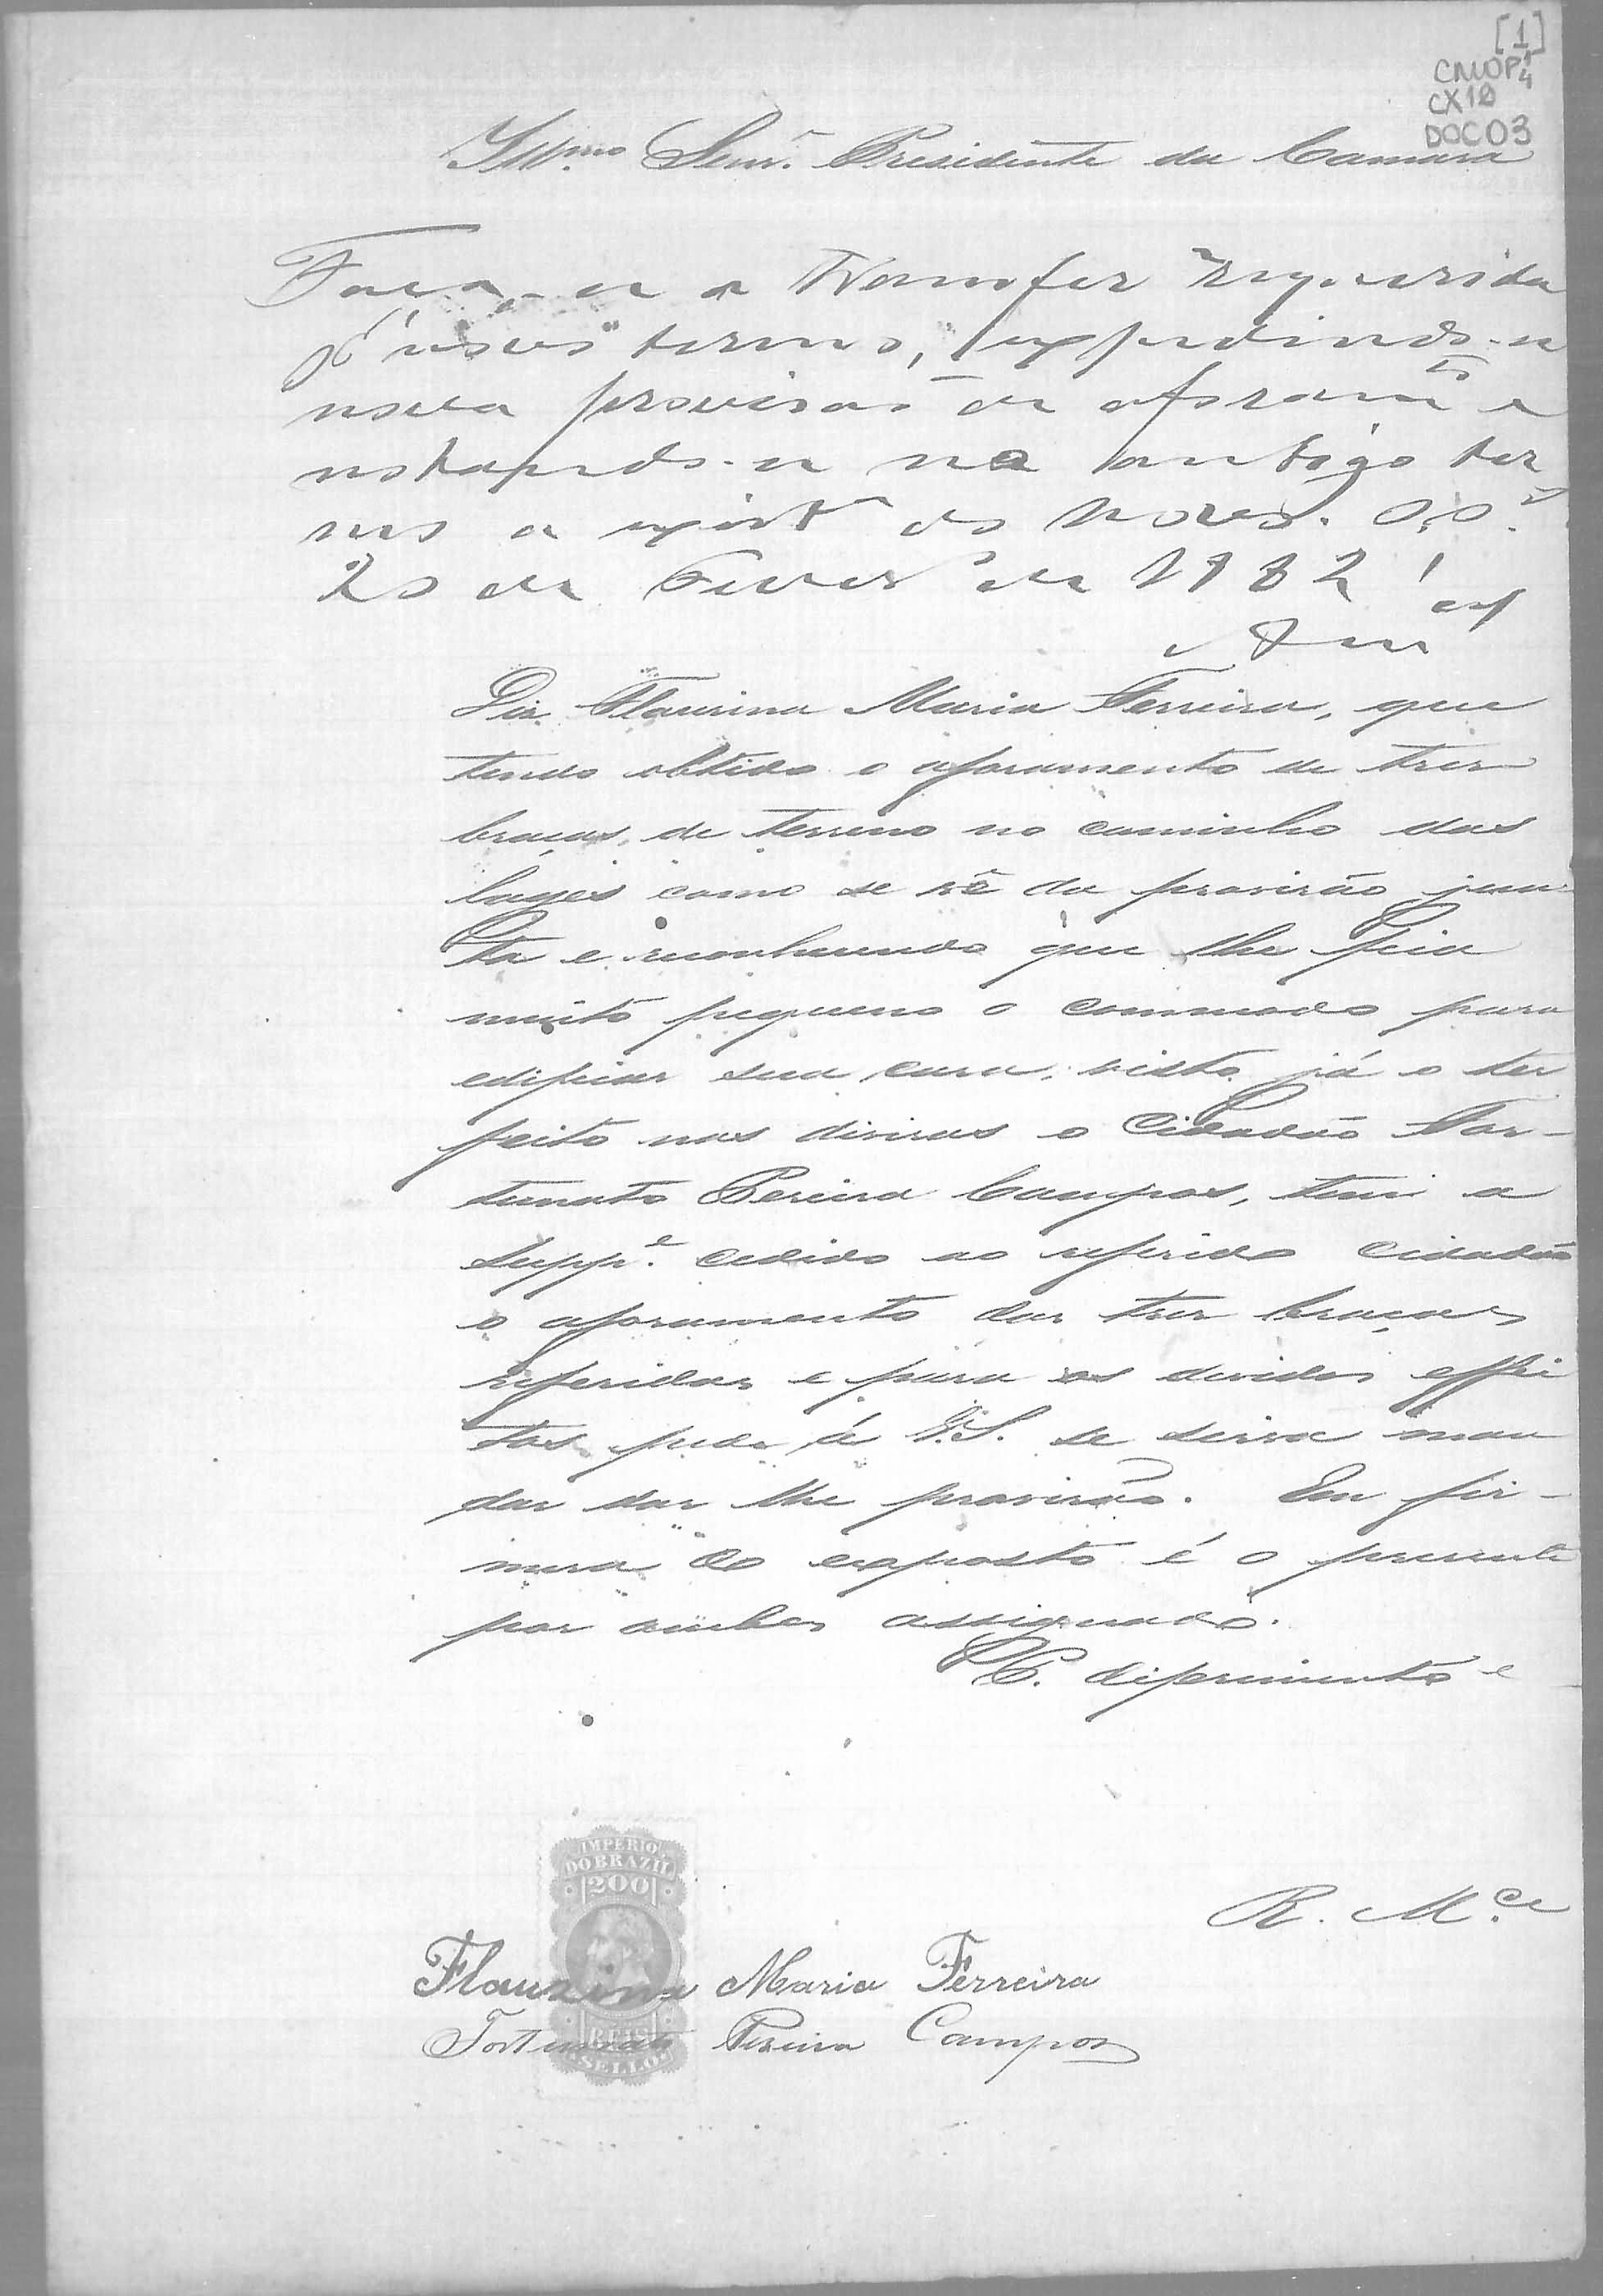 [1]
CMOP 1/4
CX10
DOC03
Illmo. Senr. Presidente da Camara
Faça-se a transfer requerida
pr. novos termos, expedindo-se
nova provisão de aforamto e
notando-se no antigo ter
mo a do novo. O. P.
20 de Fevero de 1882
Diz Flausina Maria Ferreira, que
tendo obtido o aforamento de trez
braças de terreno no caminho das
lages como se vê da provisão jun
ta e reconhecendo que lhe fica
muito pequeno o commodo para
edificar sua casa, visto já o ter
feito nas divisas o Cidadão For-
tunato Pereira Campos, tem a
Suppe. cedido ao referido Cidadão
o aforamento das trez braças
referidas e para os devidos effei
tos pede á V.S. se sirva man
dar dar lhe provisão. Em fir-
mesa do exposto é o presente
por ambos assignado.
P. diferimento e
R. Mce
IMPERIO
DO BRAZIL
200
REIS
SELLO
Flausina Maria Ferreira
Fortunato Pereira Campos